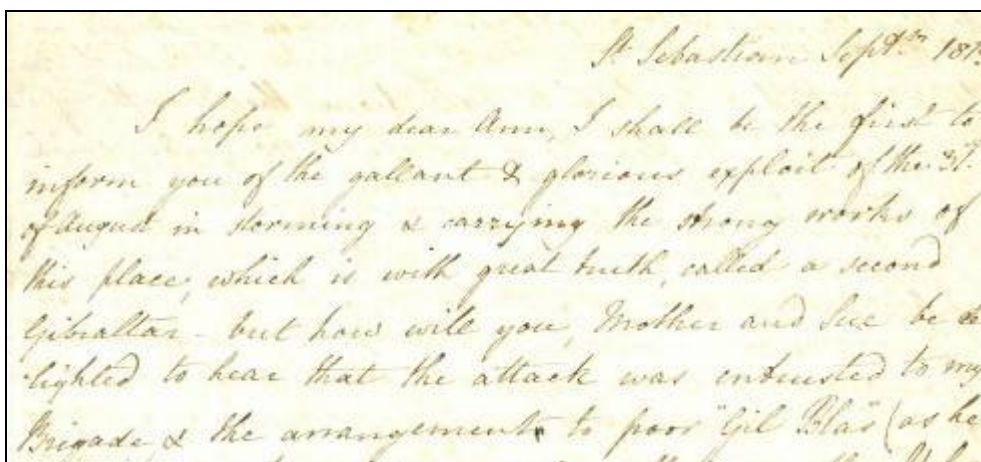 St Sebastian Septr 181
I hope my dear Ann, I shall be the first to
inform you of the gallant & glorious exploit of the 31st
of August in storming & carrying the strong works of
this place, which is with great truth, called a second
Gibraltar - but how will you, Mother and Sue be de
lighted to hear that the attack was entrusted to my
Brigade, & the arrangements to poor "Gil Blas" (as he